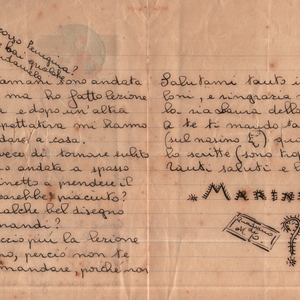 dorso Perugina?
e hai qualche
amani sono andata
ma ho fatto lezione
e dopo un'altra
spettativa mi hanno
dare a casa.
vece di tornare subito
no andata a spasso
inetto a prendere il
sarebbe piaciuto?
alche bel disegno
mandi?
ccio più la lezione
no, perciò non te
mandare, perchè non
Salutami tanto i
loni, e ringrazia
la ricolura della
A te ti mando ta
(sul nasino) qu
lo scritte (sono tu
tanti saluti e b
MARIS
Quaderno
di